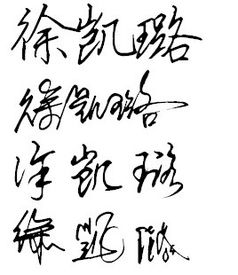 徐凯璐
徐凯璐
徐凯璐
徐凯璐